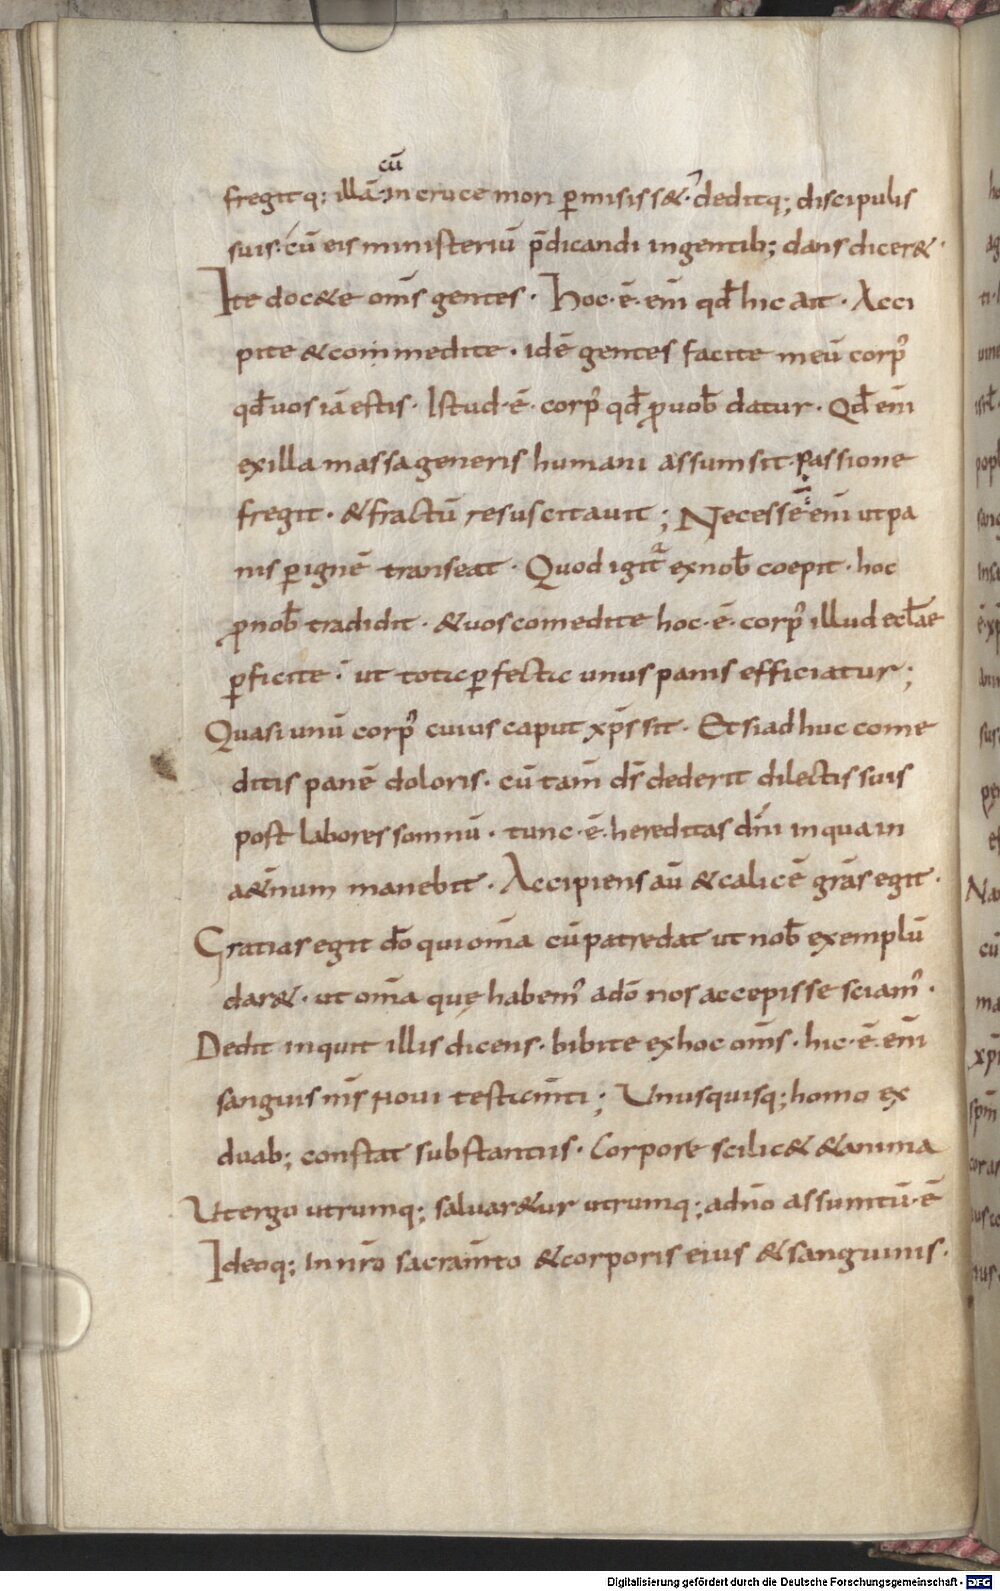 cū
fregitq; illā in cruce mori p̄misiss&· deditq; discipulis
suis· cū eis ministeriū p̄dicandi in gentib; dans dicer&·
Ite doc&e om̄s gentes· Hoc·ē·em̄ qđ hic ait· Acci
pite & commedite· idē gentes facite meū corp᾽
qđ uos iā estis· Istud·ē·corp᾽ qđ ꝓ uoƀ datur· Qđ em̄
ex illa massa generis humani assumsit· Passione
fregit· & fractū resuscitauit; Necesse ē em̄ ut pa
nis ꝑ ignē transeat· Quod igit᾽ ex noƀ coepit· hoc
ꝓ noƀ tradidit· & uos comedite hoc·ē·corp᾽ illud eccłae
ꝑficite· ut toti ꝑfecti unus panis efficiatur;
Quasi unū corp᾽ cuius caput xp̄s sit· Et si adhuc come
ditis panē doloris· cū tam̄ d̄s dederit dilectis suis
post labores somnū· tunc·ē·hereditas dn̄i in qua in
a&n̄um manebit· Accipiens aū & calicē grās egit·
Gratias egit dō qui om̄a cū patre dat ut noƀ exemplū
dar&· ut om̄a quę habem᾽ a dō nos accepisse sciam᾽·
Dedit inquit illis dicens· bibite ex hoc om̄s· hic·ē·em̄
sanguis m̄s noui testam̄ti; Unusquisq; homo ex
duab; constat substantiis· Corpore scilic& & anima
Ut ergo utrumq; saluar&ur utrumq; a dn̄o assumtū·ē
Ideoq; in nr̄o sacram̄to & corporis eius & sanguinis·
Digitalisierung gefördert durch die Deutsche Forschungsgemeinschaft · DFG